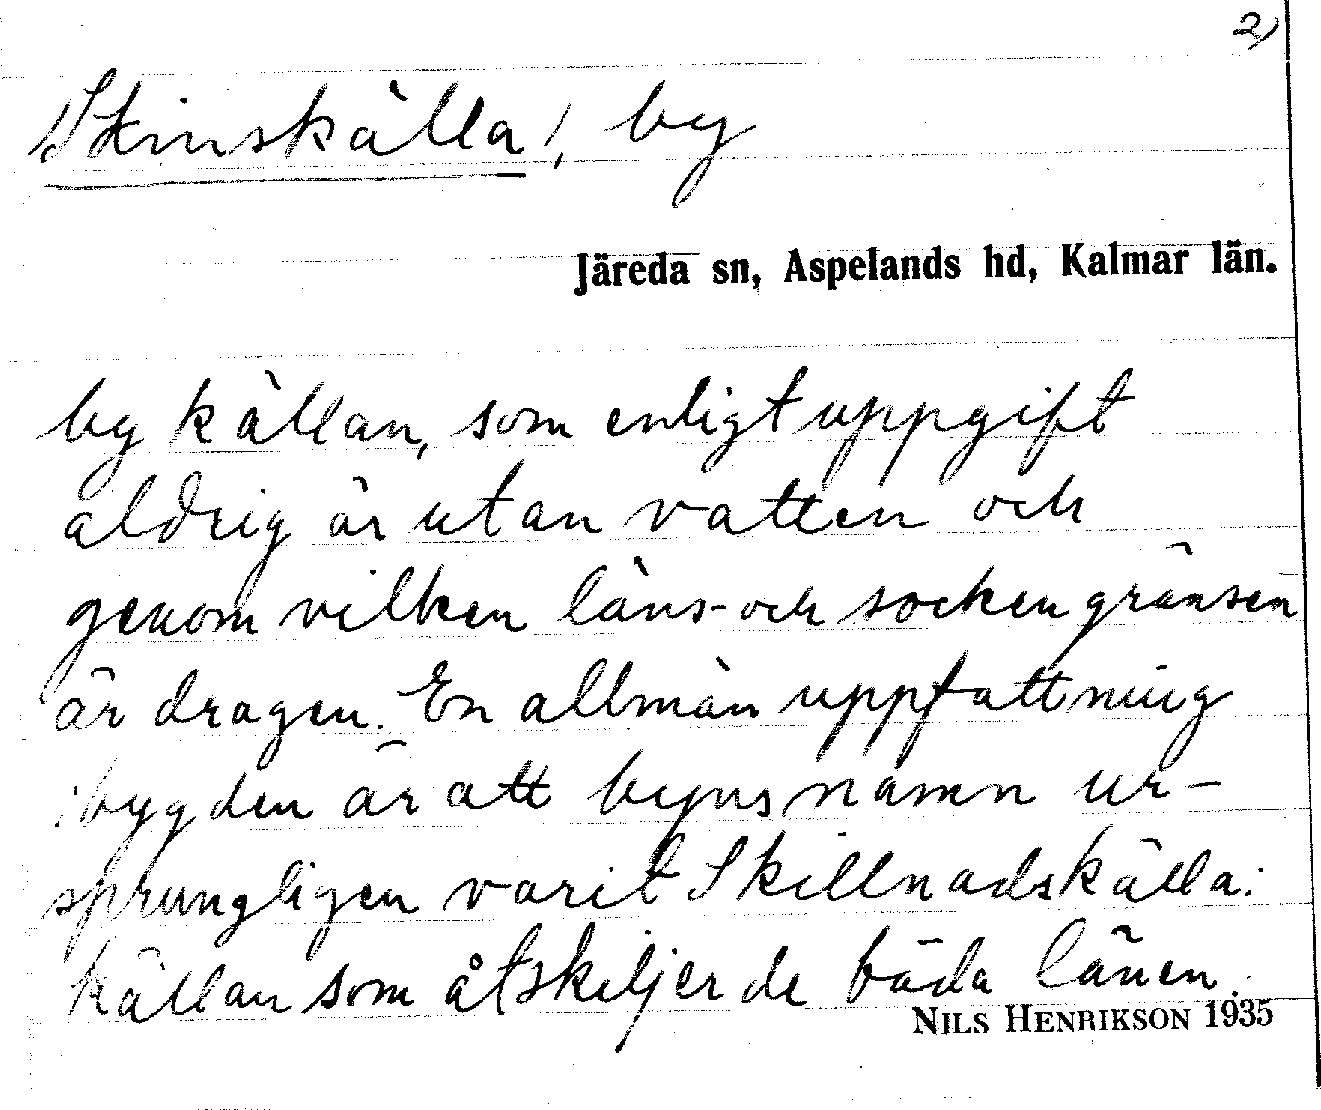 2)
/Skinskälla/, by
Järeda sn, Aspelands hd, Kalmar län.
by källan, som enligt uppgift
aldrig är utan vatten och
genom vilken läns- och sockengränsen
är dragen. En allmän uppfattning
i bygden är att byns namn ur-
sprungligen varit Skillnadskälla:
källan som åtskiljer de båda länen.
NILS HENRIKSON 1935